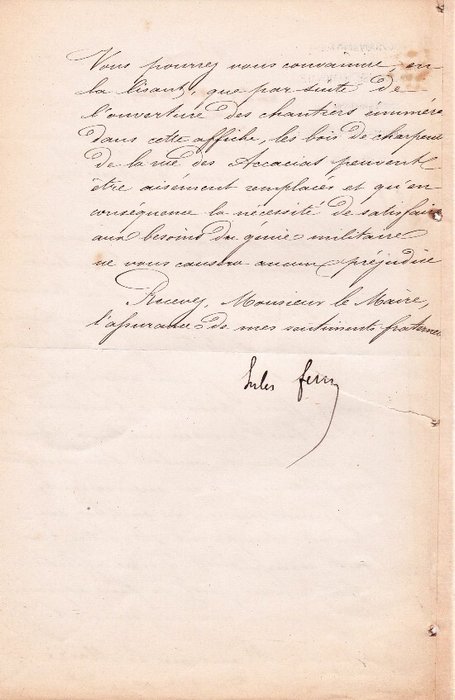 Vous pourrez vous convaincre, en
la lisant, que par suite de
l'ouverture des chantiers énuméré
dans cette affiche, les bois de charpente
de la rue des Accacias peuvent
être aisément remplacés et qu'en
conséquence la nécessité de satisfaire
aux besoins du génie militaire
ne vous causera aucun préjudice
Recevez, Monsieur le Maire,
l'assurance de mes sentiments fraternels
Jules Ferry